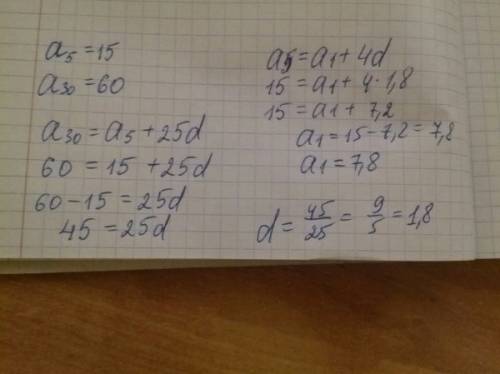 a₅ = 15
a₃₀ = 60
a₃₀ = a₅ + 25d
60 = 15 + 25d
60 - 15 = 25d
45 = 25d
a5 = a1 + 4d
15 = a1 + 4·1,8
15 = a1 + 7,2
a1 = 15 - 7,2 = 7,8
a1 = 7,8
d = 45/25 = 9/5 = 1,8